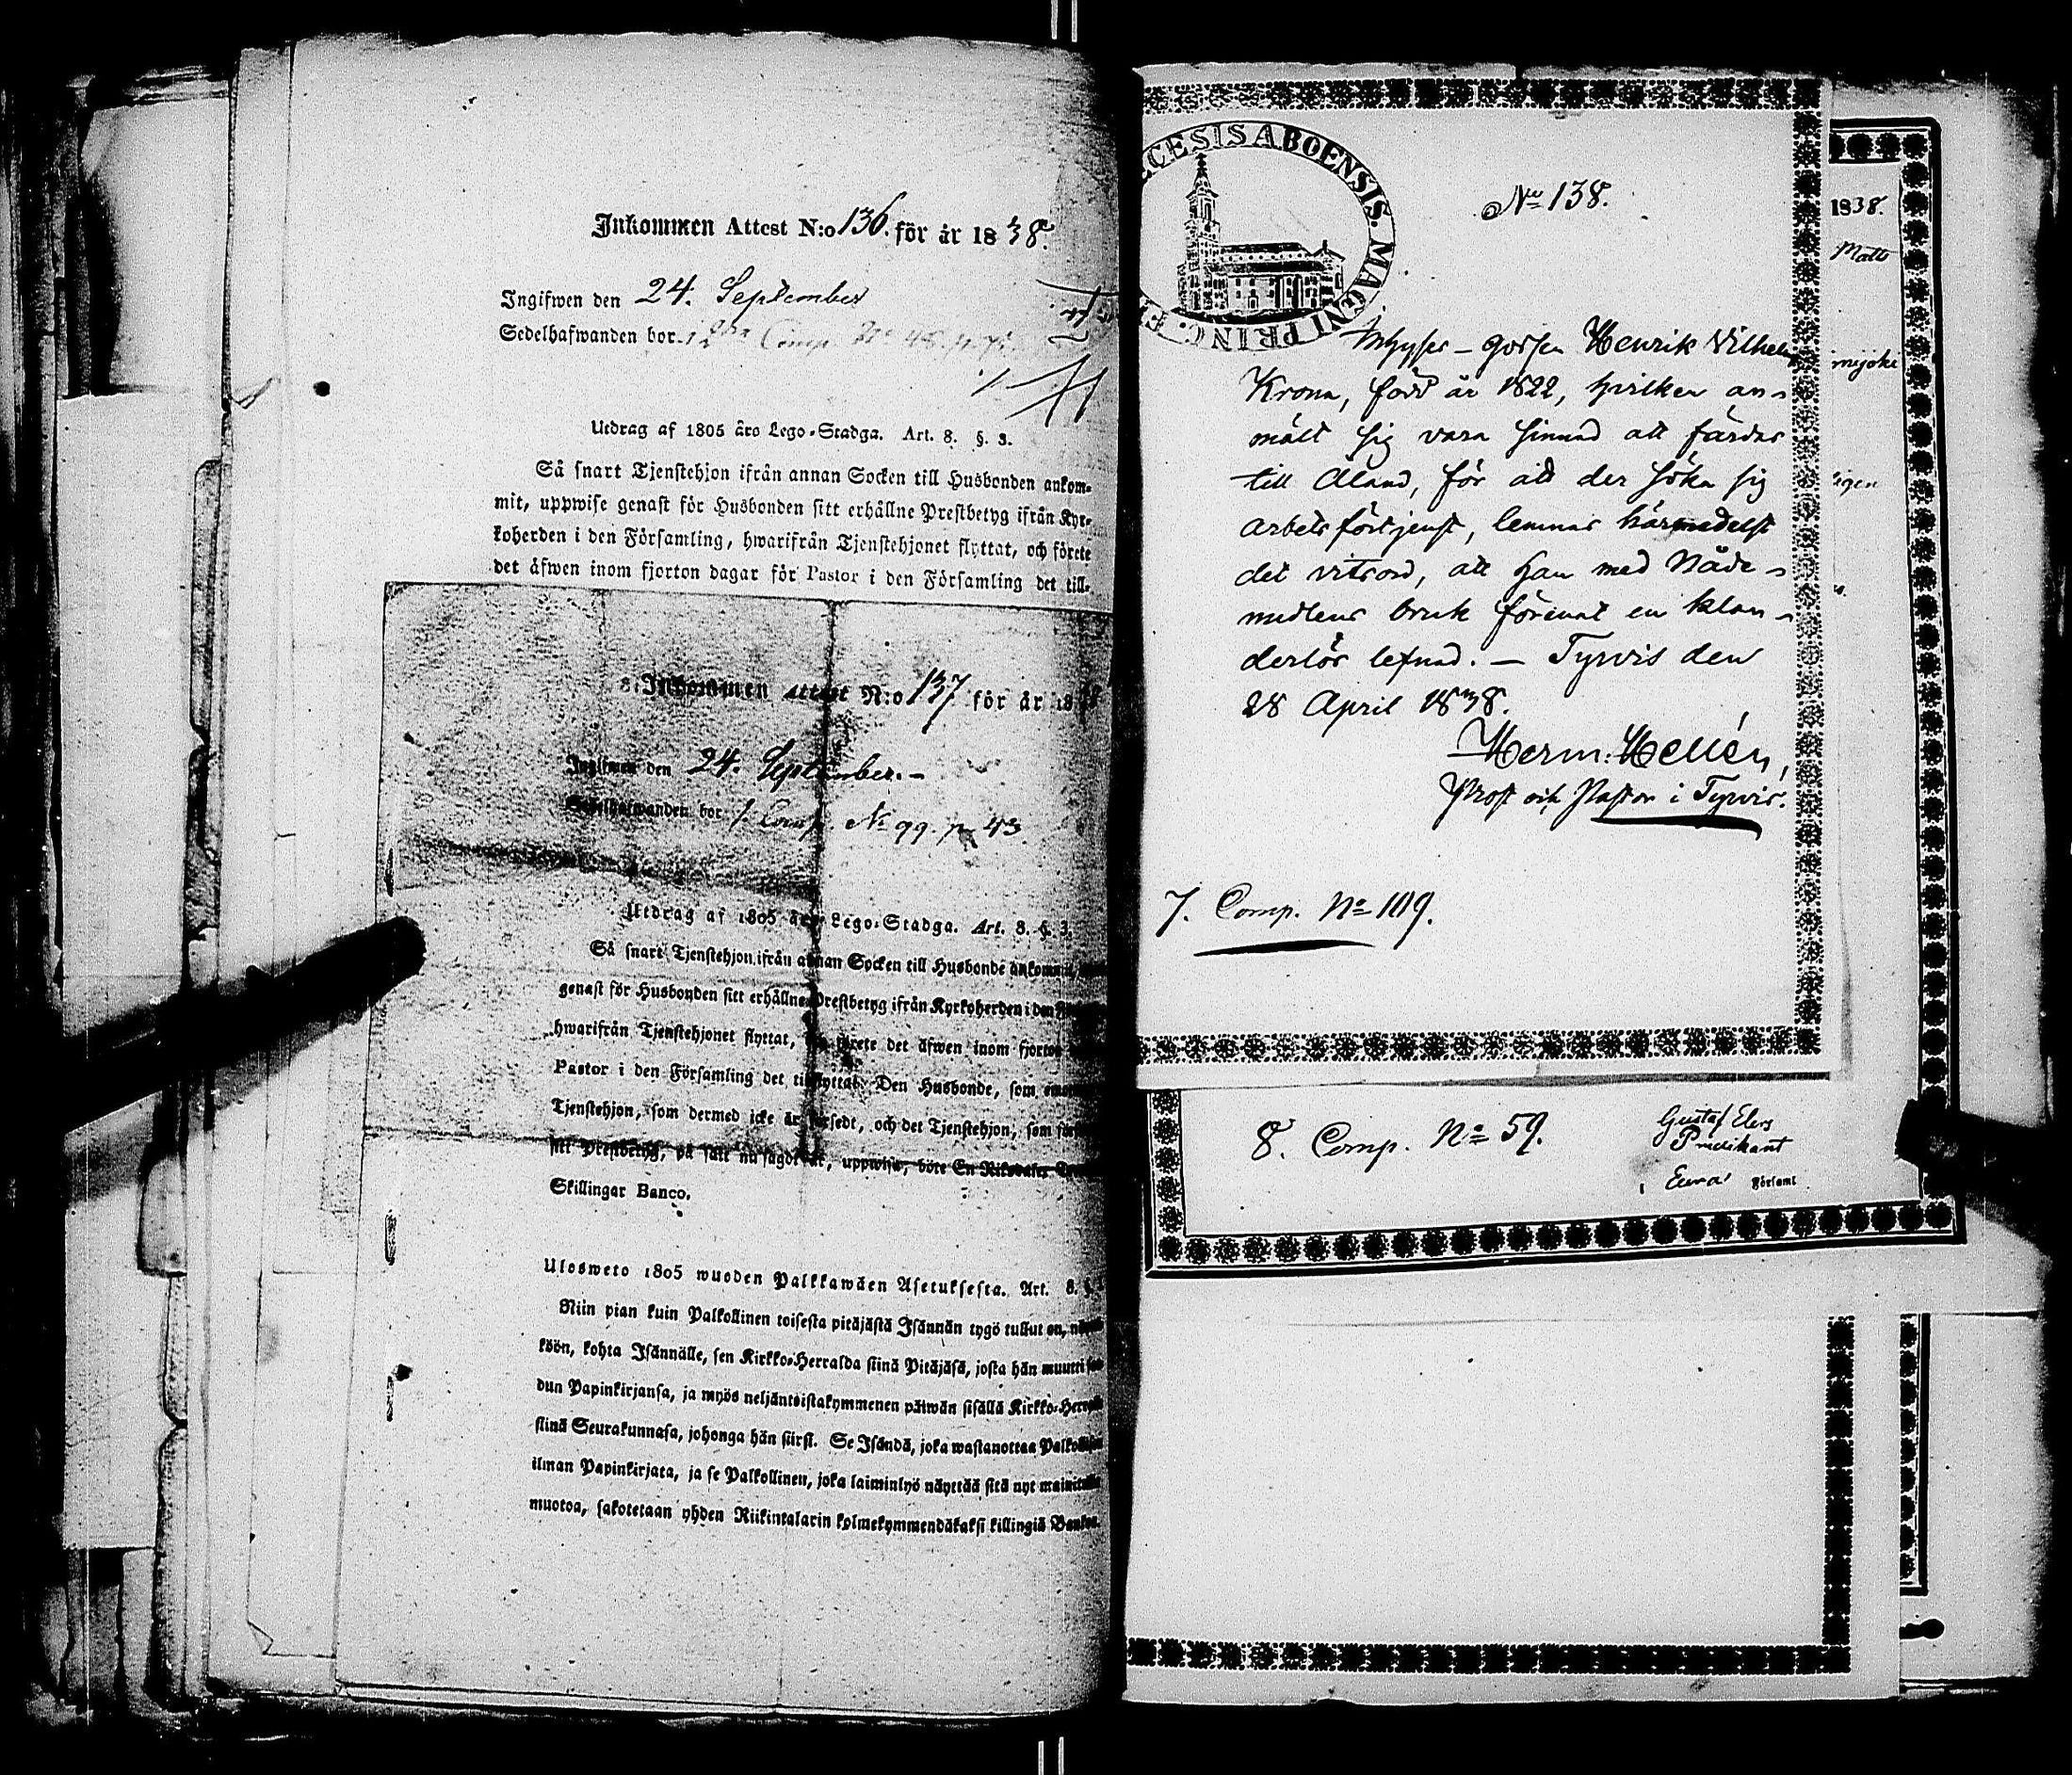 Inkommen Attest N:o 136. för år 1838.
Ingifwen den 24. September
Sedelhafwanden bor Comp. No
Utdrag af 1805 åro Lego-Stadga. Art. 8. §. 3.
Så snart Tjenstehjon ifrån annan Socken till Husbonden ankom-
mit, uppwise genast för Husbonden sitt erhållne Prestbetyg ifrån Kyr-
koherden i den Församling, hwarifrån Tjenstehjonet flyttat, och förete
det äfwen inom fjorton dagar för Pastor i den Församling det till-
Inkommen Attest N:o 137 för år 18
Ingifwen den 24. September.-
Sedelhafwanden bor 1. Comp. No 99. p. 43
Utdrag af 1805 Lego-Stadga. Art. 8. §. 3.
Så snart Tjenstehjon ifrån annan Socken till Husbonde ankommit,
genast för Husbonden sitt erhållne Prestbetyg ifrån Kyrkoherden i den
hwarifrån Tjenstehjonet flyttat, förete det äfwen inom fjorton
Pastor i den Församling det tillflyttat. Den Husbonde, som
Tjenstehjon, som dermed icke är försedt, och det Tjenstehjon, som
sitt Prestbetyg, på sätt nu sagdt är, uppwisa, böte En Riksdaler
Skillingar Banco.
Ulosweto 1805 wuoden Palkkawäen Asetuksesta. Art. 8. §.
Niin pian kuin Palkollinen toisesta pitäjästä Isännän tygö tullut on,
köön, kohta Isännälle, sen Kirkko-Herralda siinä Pitäjäsä, josta hän muutti
dun Papinkirjansa, ja myös neljäntoistakymmenen päiwän sisällä Kirkko-
siinä Seurakunnasa, johonga hän siirsi. Se Isändä, joka wastanottaa
ilman Papinkirjata, ja se Palkollinen, joka laiminlyö näyttää sitä nyt
muotoa, sakotetaan yhden Riikintalarin kolmekymmendäkaksi killingiä
CESIS ABOENSIS. MAGNI PRINC. F
No 138.
Inhyses-gossen Henrik Vilhelm
Krona, född år 1822, hvilken an-
mält sig vara sinnad att färdas
till Åland, för att der söka sig
arbetsförtjenst, lemnas härmedelst
det vitsord, att han med Nåde-
medlens bruk förenat en klan-
derlös lefnad. — Tyrvis den
28 April 1838.
Herm: Hellén,
Prost och Pastor i Tyrvis.
7. Comp. No 109.
1838.
Matts
8. Comp. No 59.
Gustaf Elers
Predikant
i Eura Församl